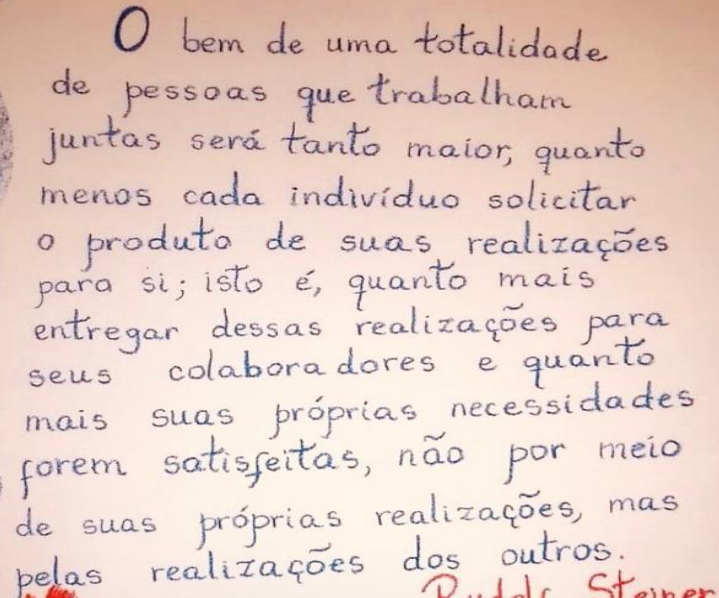 O bem de uma totalidade
de pessoas que trabalham
juntas será tanto maior, quanto
menos cada indivíduo solicitar
o produto de suas realizações
para si; isto é, quanto mais
entregar dessas realizações para
seus colaboradores e quanto
mais suas próprias necessidades
forem satisfeitas, não por meio
de suas próprias realizações, mas
pelas realizações dos outros.
Rudolf Steiner